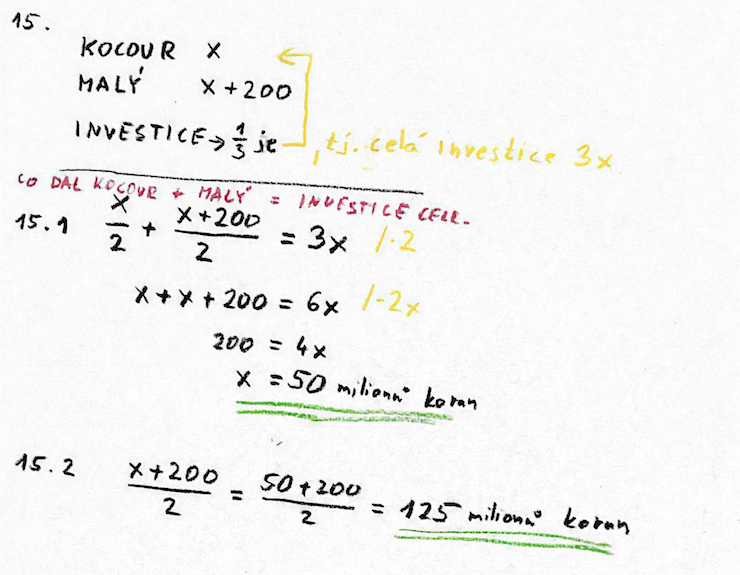 15.
KOCOUR x
MALÝ x+200
INVESTICE → 1/3 je , tj. celá investice 3x
CO DAL KOCOUR + MALÝ = INVESTICE CELK.
15.1 x/2 + (x+200)/2 = 3x /·2
x+x+200 = 6x /-2x
200 = 4x
x = 50 milionů korun
15.2 (x+200)/2 = (50+200)/2 = 125 milionů korun